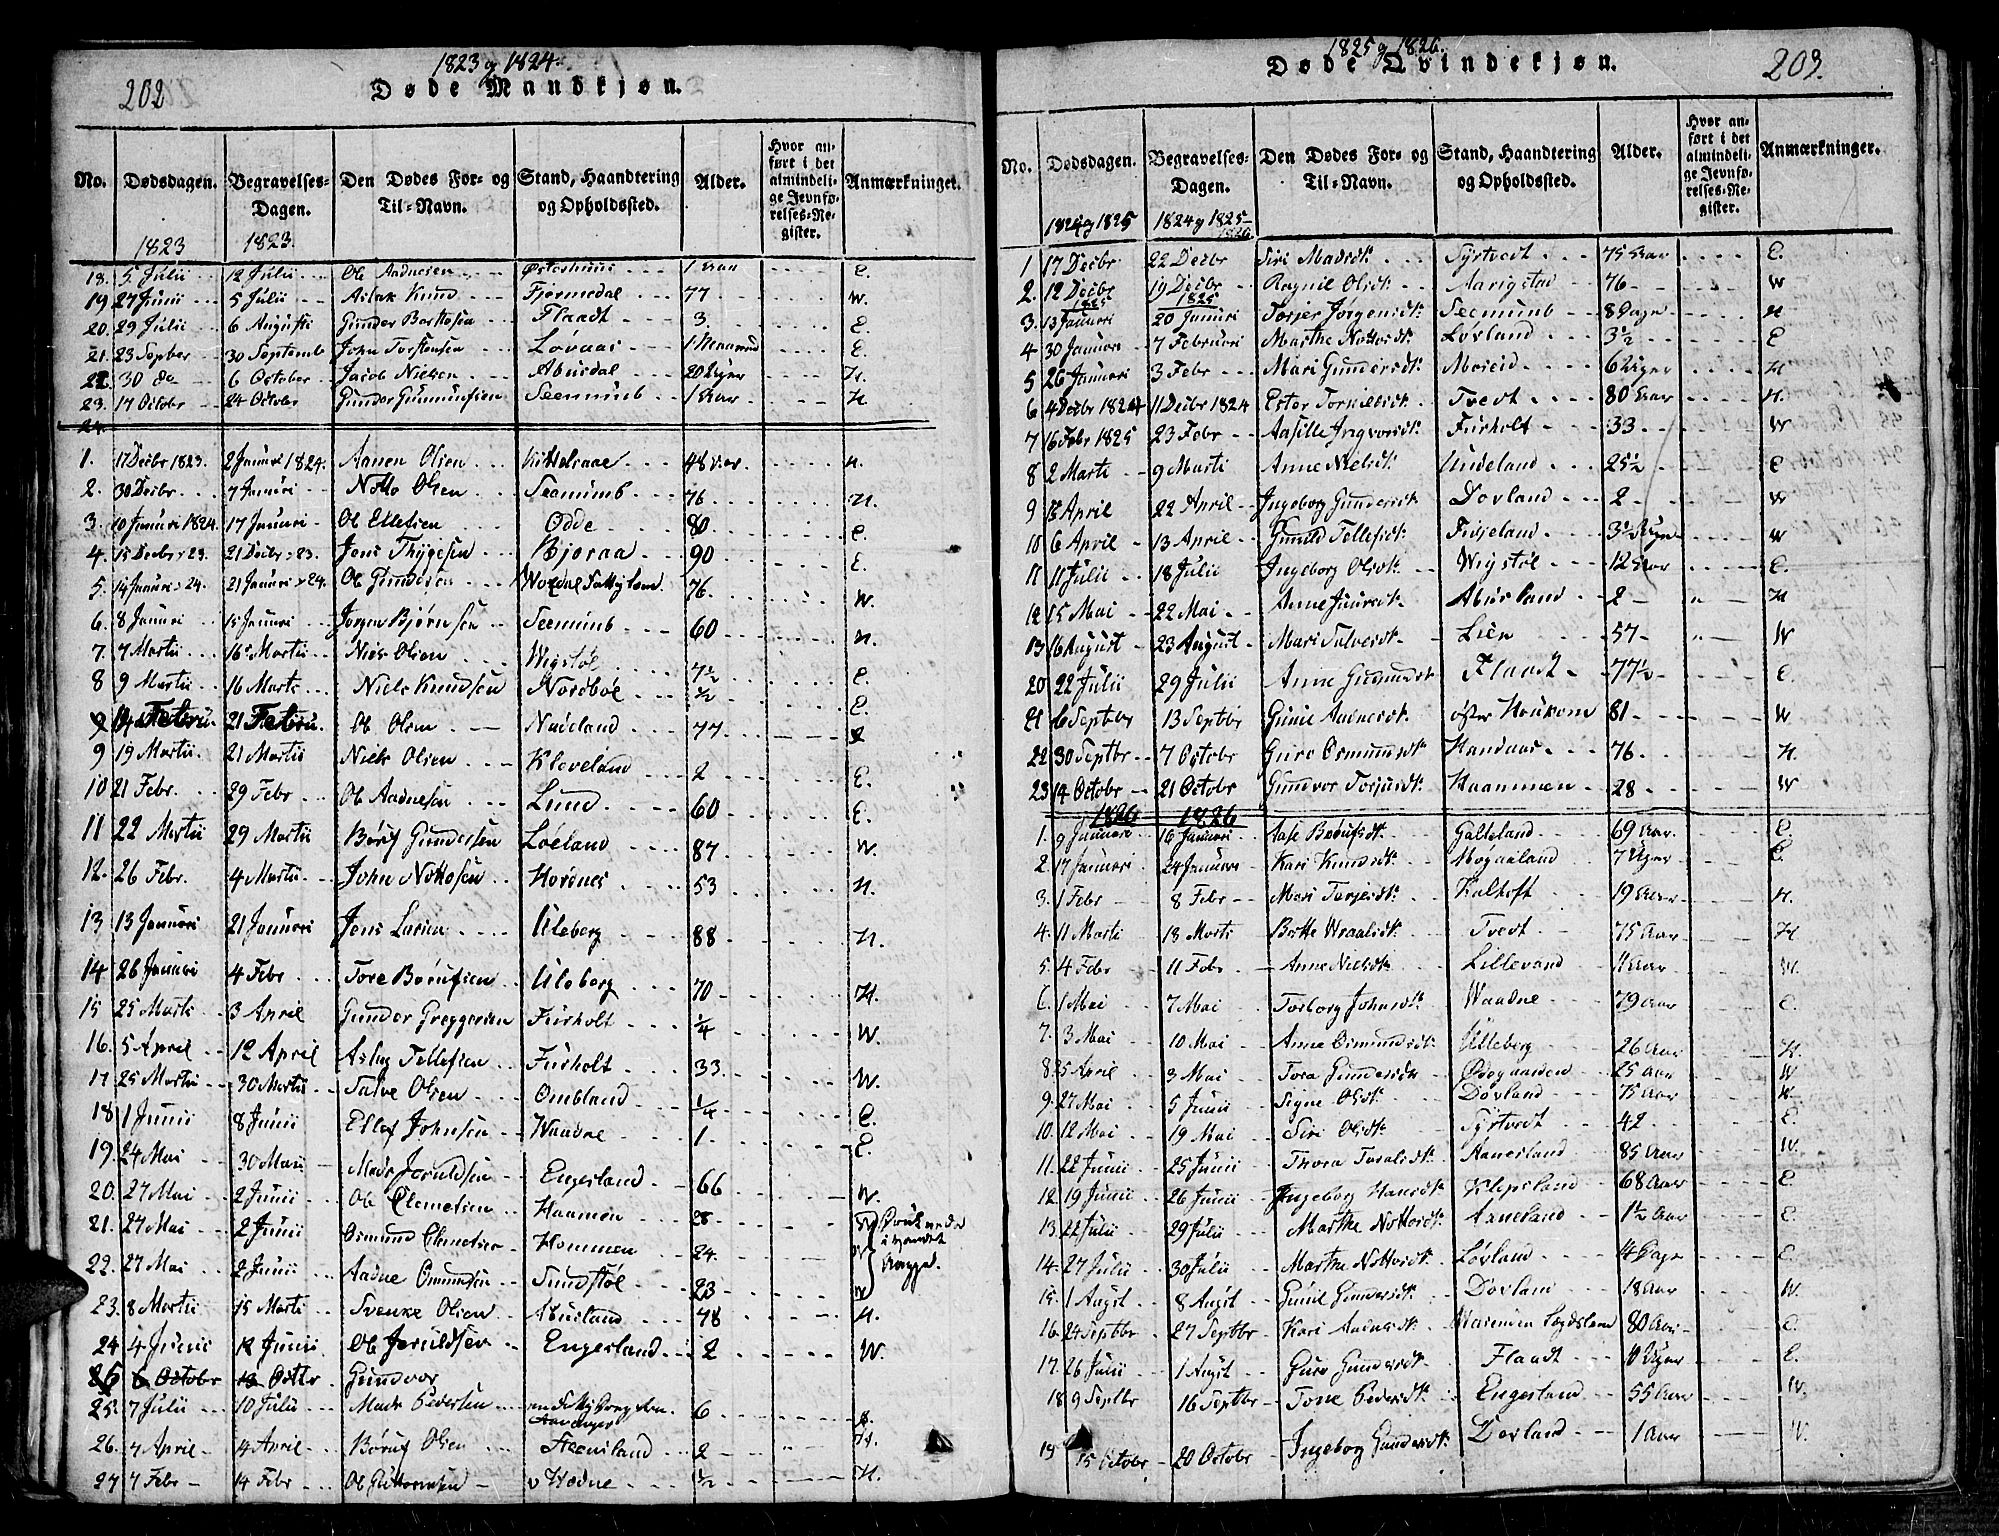 202
1823 og 1824.
Døde Mandkjøn.
No. Dødsdagen. Begravelses-Dagen. Den Dødes For- og Til-Navn. Stand, Haandtering og Opholdssted. Alder. Hvor anført i det almindelige Jevnførelses-Register. Anmærkninger.
1823 1823.
18. 5 Julii 12 Julii Ole Aadnesen Østerhuus 1 Aar E.
19 27 Junii 5 Julii Aslak Knud Fjermedal 77 W.
20. 29 Julii 6 Augusti Gunder Flaadt 3. E.
21. 23 Septber 30 Septemb John Torstensen Løvaas 1 Maaned E.
22. 30 do 6 October Jacob Nielsen Abusdal 20 Uger H.
23. 17 Octobr 24 Octobr Gunder Gunmundsen Seemunb 1 Aar H
24.
1. 17 Decbr 1823. 2 Januri 1824. Aanen Olsen 48 Aar H.
2. 30 Decbr. 7 Januri Notto Olsen Seemunb 76 H.
3. 10 Januri 1824. 17 Januri Ole Ellefsen Odde 80 E.
4. 15 Decbr 23. 21 Decbr 23. Jens Thygesen Bjoraa 90 E.
5. 14 Januri 24. 21 Januri 24. Ole Gundersen 76. W.
6. 8 Januri 15 Januri Jørgen Bjørnsen Seemunb 60 H.
7. 7 Martii 16 Martii Niels Olsen Wigstøl 7½
8 9 Martii 16 Marti Niels Knudsen Nordbøe ½ E.
14 Febru. 21 Febru. Ole Olsen Naaeland 77 E
9 19 Martii 21 Martii Niels Olsen Kleveland 2 E.
10 21 Febr. 29 Febr Ole Aadnesen Lund 60 E.
11 22 Martii 29 Martii Børuf Gundersen Løeland 87 W.
12. 26 Febr. 4 Martii John Nottosen Hordnes 53 H.
13 13 Januari 21 Januari Jens Larsen Uleberg 88 H.
14 26 Januari 4 Febr Tore Børufsen Uleberg 70 H.
15 25 Marti 3 April Gunder Greggersen Furholt ¼ W.
16. 5 April 12 April Aslag Tellefsen Furholt 33. W.
17 25 Martii 30 Martii Salve Olsen Ombland ¼ E.
18 1 Junii 8 Junii Ellef Johnsen Waadne 1. E.
19. 24 Mai 30 Maii Mads Joruldsen Engesland 66 W.
20. 27 Mai 2 Junii Ole Clemetsen Haamen 28 W
21. 27 Mai 2 Junii Osmund Clemetsen Hommen 24. W
22. 27 Mai 2 Junii Aadne Osmundsen Sundstøl 23 W
Druknede i Vandet
23. 8 Martii 15 Marti Svenke Olsen Abusland 78 H.
24 4 Junii 12 Junii Ole Joruldsen Engesland 2 W.
25 6 Octobr 13 Octbr Gundvor
25. 7 Julii 10 Julii Mads Pedersen 6
26. 7 April 14 April Børuf Olsen 2 H.
27 7 Febr 14 Febr Ole Guttormsen v Hædne ½ H.
203.
1825 og 1826.
Døde Qvindekjøn.
No. Dødsdagen. Begravelses-Dagen. Den Dødes For- og Til-Navn. Stand, Haandtering og Opholdssted. Alder. Hvor anført i det almindelige Jevnførelses-Register. Anmærkninger.
1824 og 1825 1824 og 1825 1826
1 17 Decbr 22 Decbr Siri Madsdtr. Tyrtvedt 75 Aar E.
2. 12 Decbr 19 Decbr Ragnil Olsdtr. Aarigstad 76 W
1825 1825
3. 13 Januri 20 Januri Torjer Jørgensdtr. Seemunb 8 Dage H
4 30 Januri 7 Februari Marthe Nottosdtr. Løvland 3½ E
5 26 Januri 3 Febr Mari Gundersdtr. Moseid 6 Uger H
6 4 Decbr 1824 11 Decbr 1824 Ester Torkildsdtr. Tvedt 80 Aar H.
7 16 Febr 1825 23 Febr Aasille Ingvorsdtr. Furholt 33. W
8 2 Marti 9 Marti Anne Nielsdtr. Undeland 25½ E
9 15 April 22 April Ingeborg Gundersdtr. Dovland 2 W
10 6 April 13 April Gunild Tellefsdtr. Frigeland 3½ Uger W
11 11 Julii 18 Julii Ingeborg Olsdtr. Wigstøl 12 Aar E.
12 15 Mai 22 Mai Anne Abusland 2 H
13 16 August 23 August Mari Salvesdtr. Lien 57 W
20 22 Julii 29 Julii Anne Flaadt 77½ E.
21 6 Septbr 13 Septbr Gunil Aadnesdtr. øster Houkom 81 W
22 30 Septbr 7 Octobr Guro Osmundsdtr. Kandaas 76 H.
23 14 Octobr 21 Octobr Gundvor Torjusdtr. Haammen 28 W
1826 1826
1. 9 Januari 16 Januari Aase Børufsdtr. Galteland 69 Aar E.
2 17 Januari 24 Januari Kari Knudsdtr. Møgaaland 7 Uger E.
3. 1 Febr 8 Febr Mari Torjesdtr. Kalhoft 19 Aar H.
4. 11 Marti 18 Marti Birthe Wraalsdtr. Tvedt 75 Aar H
5. 4 Febr 11 Febr Anne Nielsdtr. Lillevand 11 Aar W.
6. 1 Mai 7 Mai Torborg Johnsdtr. Waadne 79 Aar E.
7. 3 Mai 10 Mai Anne Osmundsdtr. Uleberg 26 Aar H.
8. 25 April 3 Mai Tora Gundersdtr. Ødegaarden 25 Aar W
9. 27 Mai 5 Junii Signe Olsdtr. Dovland 75 Aar W
10. 12 Mai 19 Mai Siri Olsdtr. Tyrtvedt 42 E.
11. 22 Junii 25 Junii Thora Toralsdtr. Aanesland 85 Aar W.
12 19 Junii 26 Junii Ingeborg Hansdtr. Klepsland 68 Aar E.
13. 22 Julii 29 Julii Marthe Nottosdtr. Aaneland 1½ Aar E.
14. 27 Julii 30 Julii Marthe Nottosdtr. Løvland 14 Dage E.
15. 1 Augst 8 Augst Gunil Gundersdtr. Dovland 18 Aar W.
16. 24 Septbr 27 Septbr Kari Aadnesdtr. 80 Aar E.
17. 26 Julii 1 Augst Guro Gundersdtr. Flaadt 10 Uger E.
18 9 Septbr 16 Septbr Tone Pedersdtr. Engesland 55 Aar W.
19 15 Octobr 20 Octobr Ingeborg Gundersdtr. Dovland 1 Aar W.